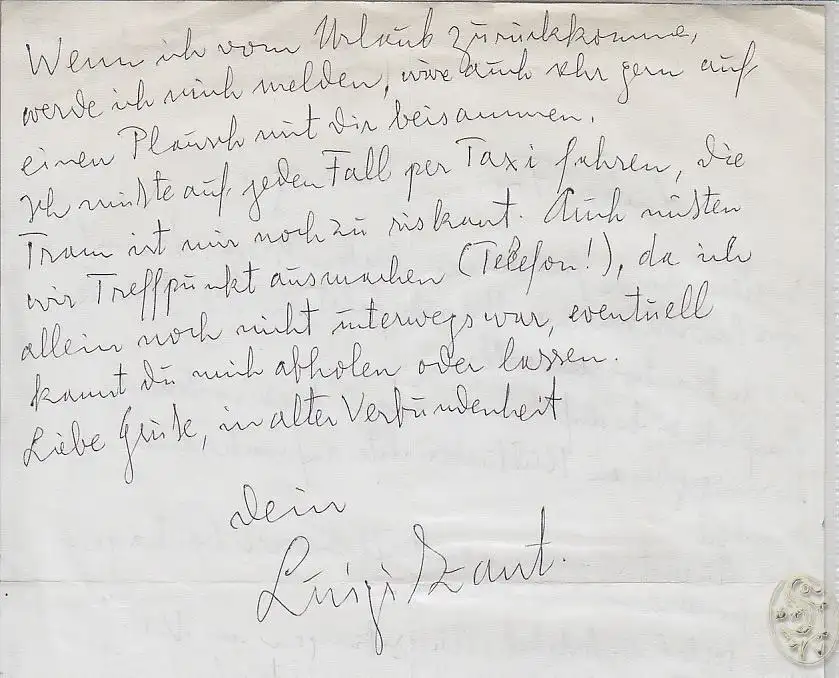 Wenn ich vom Urlaub zurückkomme,
werde ich mich melden, wäre auch sehr gern auf
einen Plausch mit Dir beisammen.
Ich müßte auf jeden Fall per Taxi fahren, die
Tram ist mir noch zu riskant. Auch müßten
wir Treffpunkt ausmachen (Telefon!), da ich
allein noch nicht unterwegs war, eventuell
kannst du mich abholen oder lassen.
Liebe Grüße, in alter Verbundenheit
Dein
Luigi